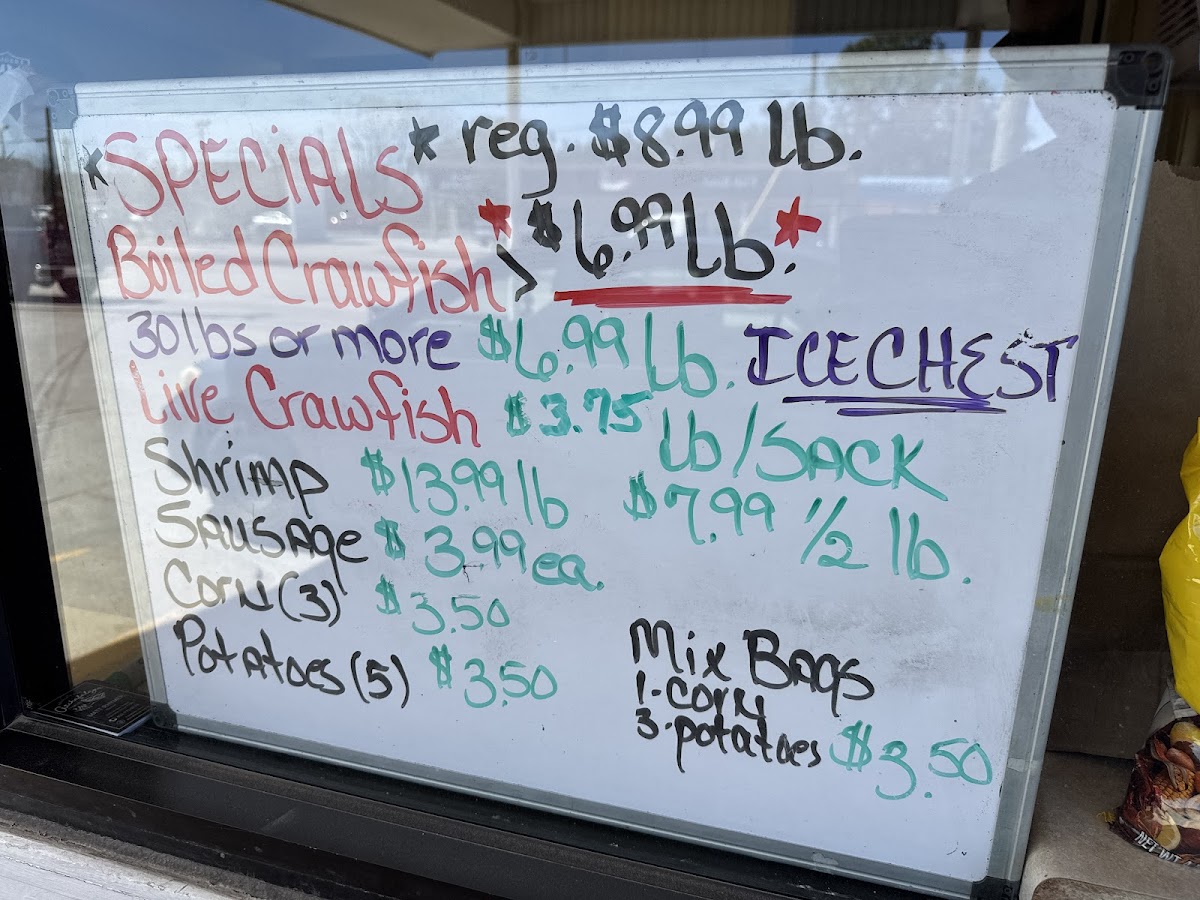 *SPECIALS* reg. $8.99 lb.
Boiled Crawfish > *$6.99 lb.*
30 lbs or more $6.99 lb. ICE CHEST
Live Crawfish $3.75 lb/SACK
Shrimp $13.99 lb $7.99 1/2 lb.
SAUSAge $3.99 ea.
Corn (3) $3.50
Potatoes (5) $3.50
Mix BAgs
1-corn
3-potatoes $3.50
NET WT